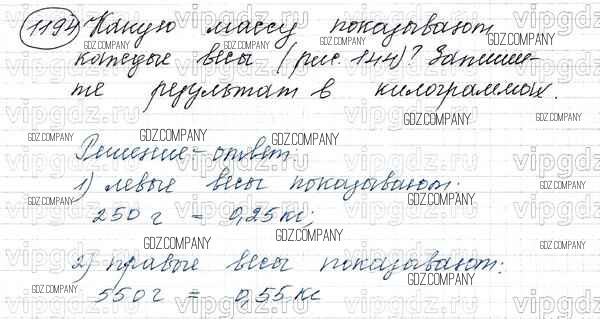 1194 Какую массу показывают
каждые весы (рис. 144)? Запиши-
те результат в килограммах.
Решение-ответ:
1) левые весы показывают:
250 г = 0,25 кг;
2) правые весы показывают:
550 г = 0,55 кг